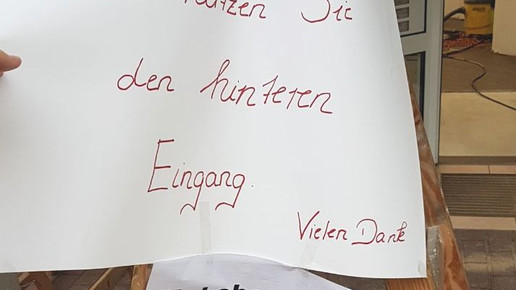 Sie
den hinteren
Eingang.
Vielen Dank